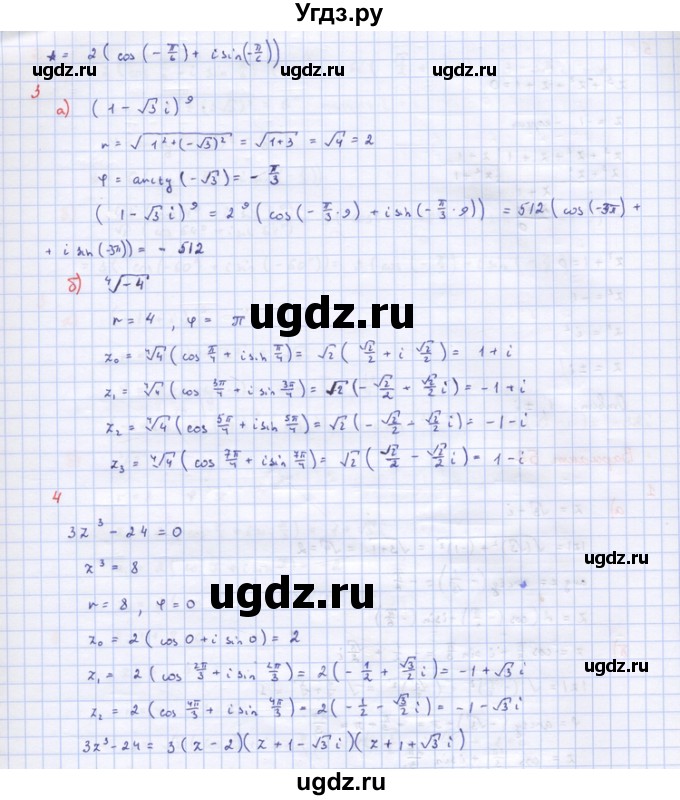 Угдз.ру
z = 2 ( cos (- π/6) + i sin(- π/6))
ugdz.ru ugdz.ru ugdz.ru
3
а) (1 - √3 i)⁹
r = √(1² + (-√3)²) = √(1+3) = √4 = 2
φ = arctg (-√3) = - π/3
(1 - √3 i)⁹ = 2⁹ (cos(- π/3 · 9) + i sin(- π/3 · 9)) = 512 (cos(-3π) +
+ i sin(-3π)) = - 512
б) ⁴√-4
ugdz.ru
r = 4 , φ = π
z₀ = ⁴√4 ( cos π/4 + i sin π/4 ) = √2 ( √2/2 + i √2/2 ) = 1 + i
z₁ = ⁴√4 ( cos 3π/4 + i sin 3π/4 ) = √2 (- √2/2 + √2/2 i) = -1 + i
z₂ = ⁴√4 ( cos 5π/4 + i sin 5π/4 ) = √2 (- √2/2 - √2/2 i) = -1 - i
z₃ = ⁴√4 ( cos 7π/4 + i sin 7π/4 ) = √2 ( √2/2 - √2/2 i) = 1 - i
4
3z³ - 24 = 0
ugdz.ru
z³ = 8
ugdz.ru
r = 8 , φ = 0
z₀ = 2 ( cos 0 + i sin 0) = 2
z₁ = 2 ( cos 2π/3 + i sin 2π/3 ) = 2(- 1/2 + √3/2 i) = -1 + √3 i
z₂ = 2 ( cos 4π/3 + i sin 4π/3 ) = 2(- 1/2 - √3/2 i) = -1 - √3 i
3z³ - 24 = 3 ( z - 2)( z + 1 - √3 i )( z + 1 + √3 i )
ugdz.ru ugdz.ru ugdz.ru